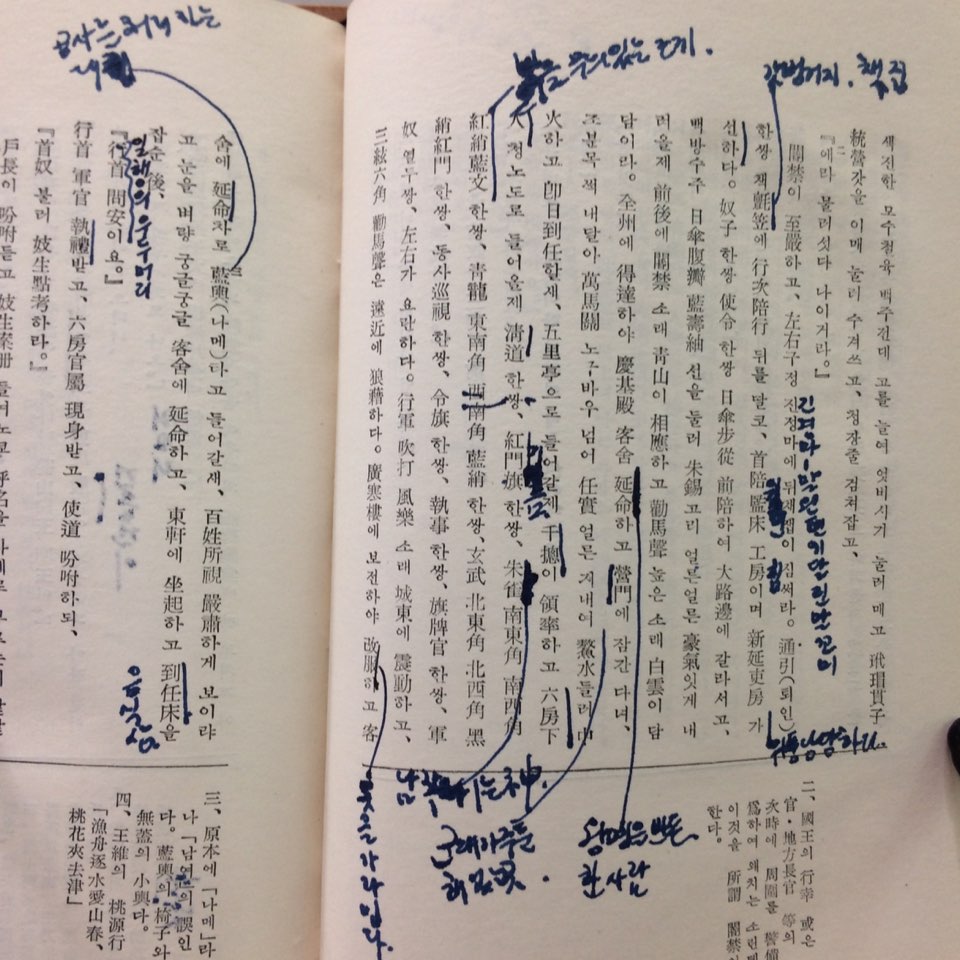 색진한 모수철육 백주전데 고를 늘여 엇비시기 눌러 메고 玳瑁貫子
統營갓을 이매 눌러 수겨쓰고, 청장줄 검쳐잡고,
『에라 물러섯다 나이거라。』
閣禁이 至嚴하고, 左右子정 전정마에 뒤채잽이 짐써라。通引(퇴인)
한쌍 책氈笠에 行次陪行 뒤를 딸코、首陪 監床 工房이며 新延吏房 가
선하다。奴子 한쌍 使令 한쌍 日傘步從 前陪하여 大路邊에 갈라서고、
백방수주 日傘腹瓣 藍壽紬 선을 둘러 朱錫 고리 얼른얼른 豪氣잇게 내
려올제 前後에 閣禁 소래 靑山이 相應하고 勸馬聲 높은 소래 白雲이 담
담이라。全州에 得達하야 慶基殿 客舍 延命하고 營門에 잠간 다녀、
조분목 썩 내달아 萬馬關 노구바우 넘어 任實 얼른 지내여 鰲水들러 中
火하고 卽日到任할새、五里亭으로 들어갈제 千摠이 領率하고 六房下
人 청노도로 들어올제 淸道 한쌍、紅門旗 한쌍、朱雀 南東角 南西角
紅綃藍文 한쌍、靑龍 東南角 西南角 藍綃 한쌍、玄武 北東角 北西角 黑
綃紅門 한쌍、동사巡視 한쌍、令旗 한쌍、執事 한쌍、旗牌官 한쌍、軍
奴 열두쌍、左右가 요란하다。行軍 吹打 風樂 소래 城東에 震動하고、
三絃六角 勸馬聲은 遠近에 狼藉하다。廣寒樓에 보전하야 改服하고 客
二、國王의 行幸 或은
官・地方長官 等의
次時에 周圍를 警備
爲하여 왜치는 소린데
이것을 所謂 閣禁이
한다。
붉은 무늬있는
책집
왕명을 받든
한사람
옷을 가라입다.
공사를 처리하는
舍에 延命차로 藍輿(나메)타고 들어갈새、百姓所視 嚴肅하게 보이랴
고 눈을 벼량 궁글궁글 客舍에 延命하고、東軒에 坐起하고 到任床을
잡순 後、
『行首 問安이요。』
行首 軍官 執禮받고、六房官屬 現身받고、使道 吩咐하되、
『首奴 불러 妓生點考하라。』
戶長이 吩咐듣고 妓生案册 들여노코 呼名을
일해의 우두머리
음식상
三、原本에「나메」라
나「남여」의 誤인
다。藍輿의 椅子와
無蓋의 小輿다。
四、王維의 桃源行
「漁舟逐水愛山春、
桃花夾去津」